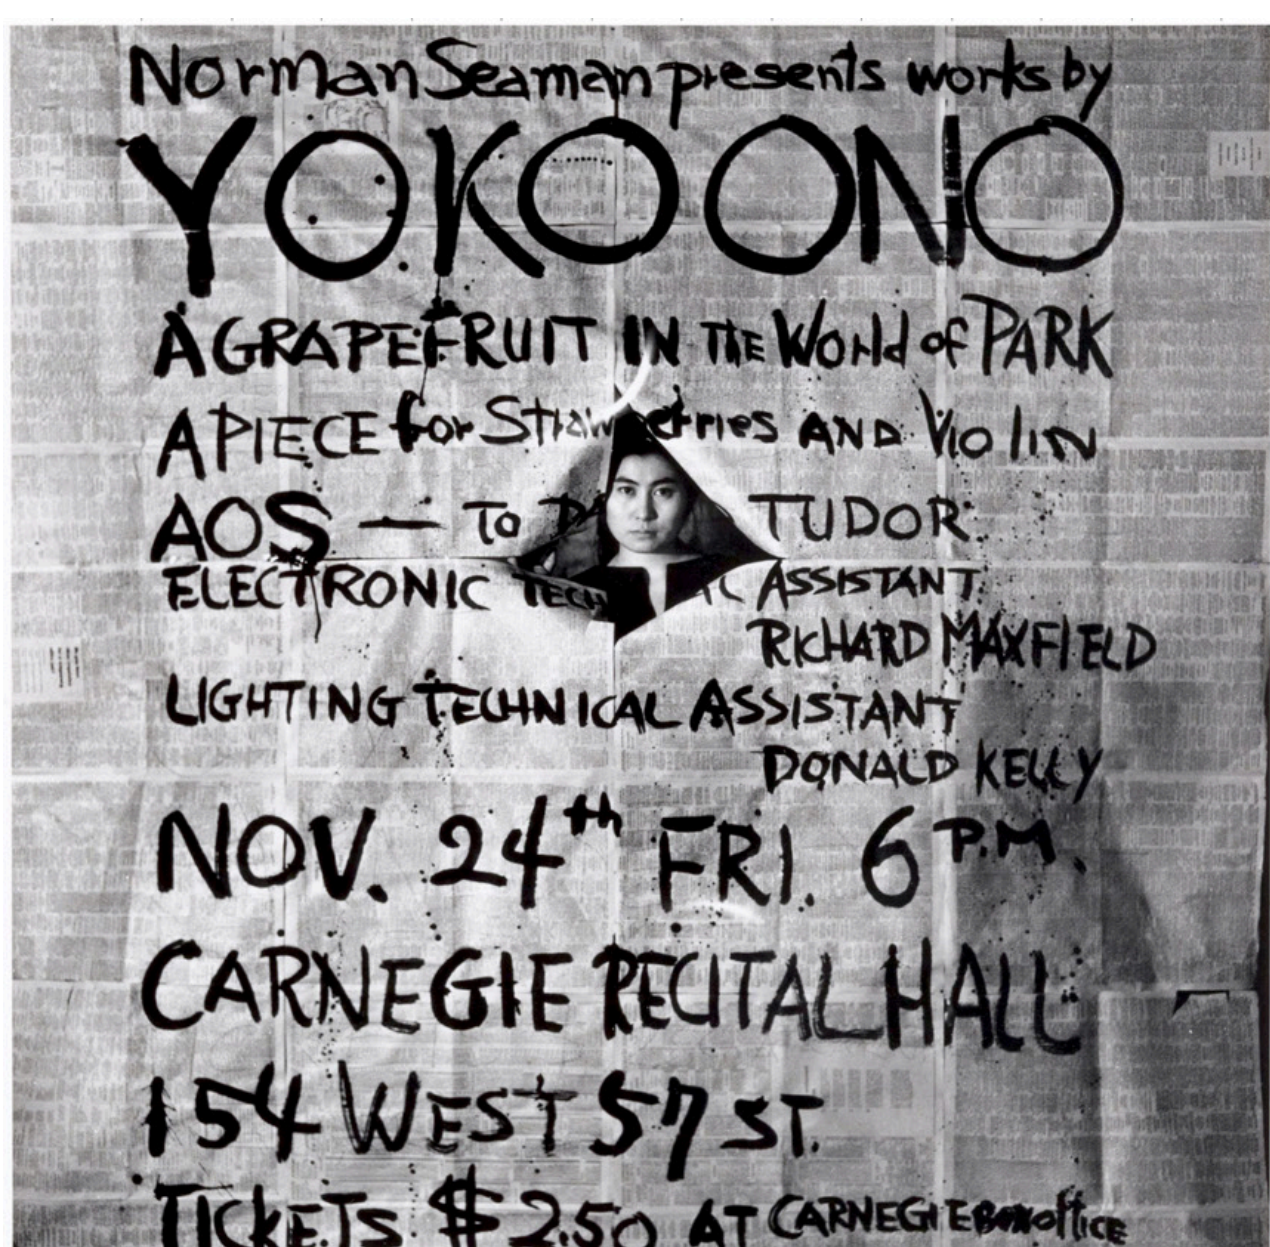 Norman Seaman presents works by
YOKO ONO
A GRAPEFRUIT IN THE World of PARK
A PIECE for Strawberries AND Violin
AOS — To DA TUDOR
ELECTRONIC TECH AL ASSISTANT
RICHARD MAXFIELD
LIGHTING TECHNICAL ASSISTANT
DONALD KELLY
NOV. 24th FRI. 6 P.M.
CARNEGIE RECITAL HALL
154 WEST 57 ST.
TICKETS $2.50 AT CARNEGIE BOX office